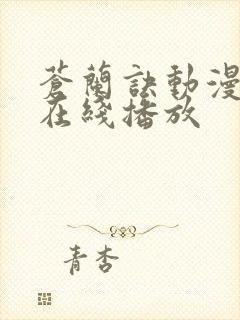 蒼蘭訣動漫
在綫播放
青杏